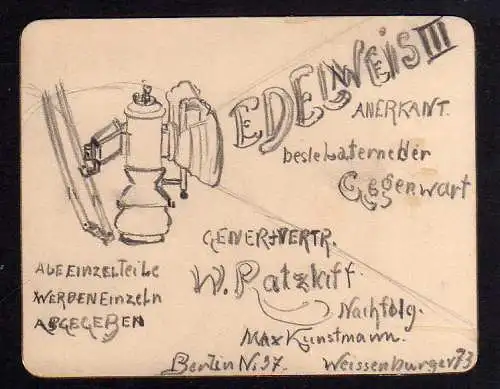 EDELWEIS III
ANERKANT.
beste Laterne der
Gegenwart
GENER=VERTR.
W. Ratzkiff
Nachfolg.
Max Kunstmann.
Berlin N. 37. Weissenburger 73
ALLE EINZELTEILE
WERDEN EINZELN
ABGEGEBEN